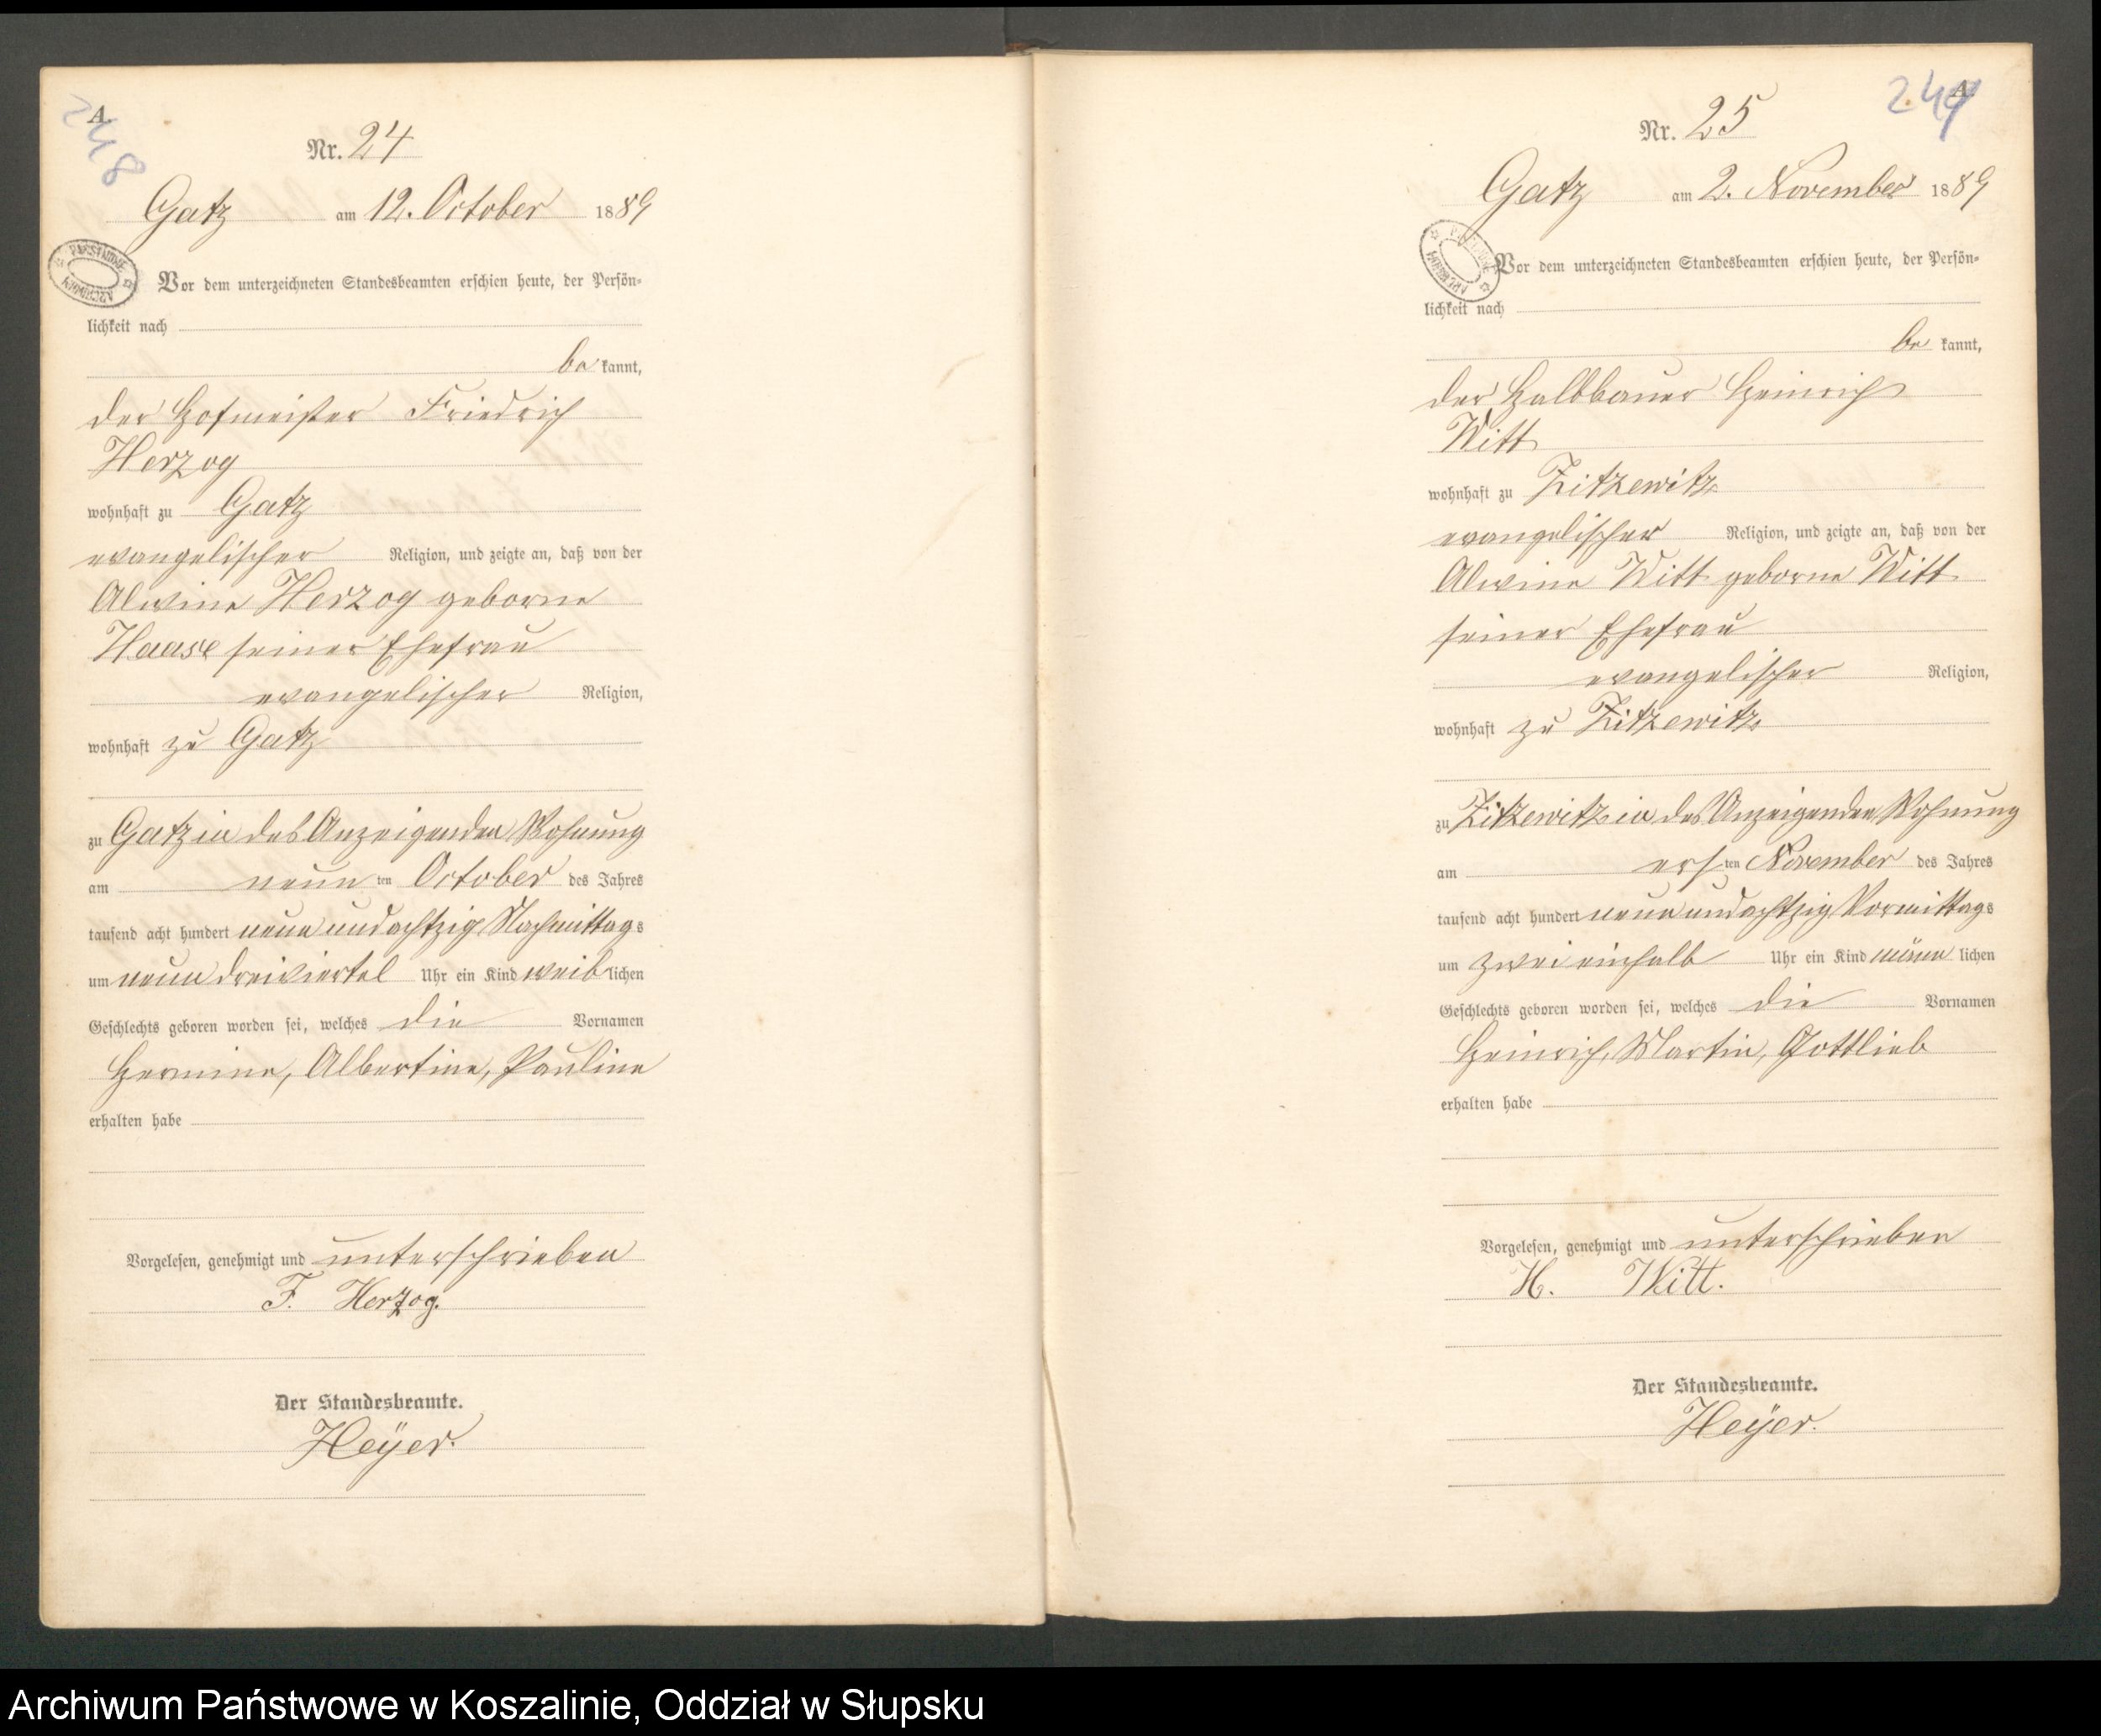 A.
248
Nr. 24
Gatz am 12. October 1889
Vor dem unterzeichneten Standesbeamten erschien heute, der Persön-
lichkeit nach
be kannt,
der Hofmeister Friedrich
Herzog
wohnhaft zu Gatz
evangelischer Religion, und zeigte an, daß von der
Alwine Herzog geborne
Haase seiner Ehefrau
evangelischer Religion,
wohnhaft zu Gatz
zu Gatz in des Anzeigenden Wohnung
am neun ten October des Jahres
tausend acht hundert neun und achtzig Nachmittag s
um neun dreiviertel Uhr ein Kind weib lichen
Geschlechts geboren worden sei, welches die Vornamen
Hermine, Albertine, Pauline
erhalten habe
Vorgelesen, genehmigt und unterschrieben
F. Herzog.
Der Standesbeamte.
Heÿer.
A.
249
Nr. 25
Gatz am 2. November 1889
Vor dem unterzeichneten Standesbeamten erschien heute, der Persön-
lichkeit nach
be kannt,
der Halbbauer Heinrich
Witt
wohnhaft zu Zitzewitz
evangelischer Religion, und zeigte an, daß von der
Alwine Witt geborne Witt
seiner Ehefrau
evangelischer Religion,
wohnhaft zu Zitzewitz
zu Zitzewitz in des Anzeigenden Wohnung
am ers ten November des Jahres
tausend acht hundert neun und achtzig Vormittag s
um zwei einhalb Uhr ein Kind männ lichen
Geschlechts geboren worden sei, welches die Vornamen
Heinrich, Martin, Gottlieb
erhalten habe
Vorgelesen, genehmigt und unterschrieben
H. Witt.
Der Standesbeamte.
Heÿer.
Archiwum Państwowe w Koszalinie, Oddział w Słupsku